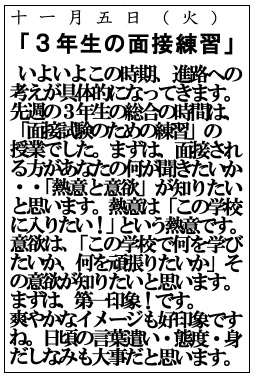 十一月五日（火）
「３年生の面接練習」
いよいよこの時期、進路への
考えが具体的になってきます。
先週の３年生の総合の時間は、
「面接試験のための練習」の
授業でした。まずは、面接され
る方があなたの何が聞きたいか
・・「熱意と意欲」が知りたい
と思います。熱意は「この学校
に入りたい！」という熱意です。
意欲は、「この学校で何を学び
たいか、何を頑張りたいか」そ
の意欲が知りたいと思います。
まずは、第一印象！です。
爽やかなイメージも好印象です
ね。日頃の言葉遣い・態度・身
だしなみも大事だと思います。